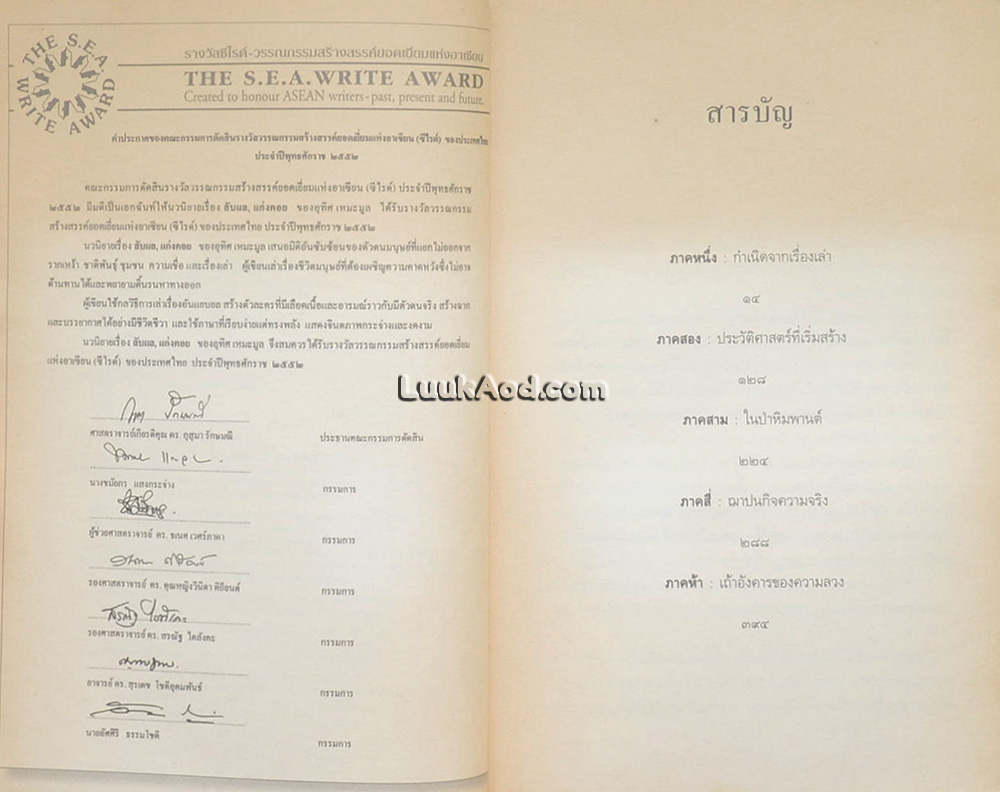 THE S.E.A. WRITE AWARD
รางวัลซีไรต์-วรรณกรรมสร้างสรรค์ยอดเยี่ยมแห่งอาเซียน
THE S.E.A. WRITE AWARD
Created to honour ASEAN writers - past, present and future.
คำประกาศของคณะกรรมการตัดสินรางวัลวรรณกรรมสร้างสรรค์ยอดเยี่ยมแห่งอาเซียน (ซีไรต์) ของประเทศไทย
ประจำปีพุทธศักราช ๒๕๕๒
คณะกรรมการตัดสินรางวัลวรรณกรรมสร้างสรรค์ยอดเยี่ยมแห่งอาเซียน (ซีไรต์) ประจำปีพุทธศักราช
๒๕๕๒ มีมติเป็นเอกฉันท์ให้นวนิยายเรื่อง ลับแล, แก่งคอย ของอุทิศ เหมะมูล ได้รับรางวัลวรรณกรรม
สร้างสรรค์ยอดเยี่ยมแห่งอาเซียน (ซีไรต์) ของประเทศไทย ประจำปีพุทธศักราช ๒๕๕๒
นวนิยายเรื่อง ลับแล, แก่งคอย ของอุทิศ เหมะมูล เสนอมิติอันซับซ้อนของตัวตนมนุษย์ที่แยกไม่ออกจาก
รากเหง้า ชาติพันธุ์ ชุมชน ความเชื่อ และเรื่องเล่า ผู้เขียนเล่าเรื่องชีวิตมนุษย์ที่ต้องเผชิญความคาดหวังซึ่งไม่อาจ
ต้านทานได้และพยายามดิ้นรนหาทางออก
ผู้เขียนใช้กลวิธีการเล่าเรื่องอันแยบยล สร้างตัวละครที่มีเลือดเนื้อและอารมณ์ราวกับมีตัวตนจริง สร้างฉาก
และบรรยากาศได้อย่างมีชีวิตชีวา และใช้ภาษาที่เรียบง่ายแต่ทรงพลัง แสดงจินตภาพกระจ่างและงดงาม
นวนิยายเรื่อง ลับแล, แก่งคอย ของอุทิศ เหมะมูล จึงสมควรได้รับรางวัลวรรณกรรมสร้างสรรค์ยอดเยี่ยม
แห่งอาเซียน (ซีไรต์) ของประเทศไทย ประจำปีพุทธศักราช ๒๕๕๒
ศาสตราจารย์เกียรติคุณ ดร. กุสุมา รักษมณี
ประธานคณะกรรมการตัดสิน
นางชมัยภร แสงกระจ่าง
กรรมการ
ผู้ช่วยศาสตราจารย์ ดร. ธเนศ เวศร์ภาดา
กรรมการ
รองศาสตราจารย์ ดร. คุณหญิงวินิตา ดิถียนต์
กรรมการ
รองศาสตราจารย์ ดร. สรณัฐ ไตลังคะ
กรรมการ
อาจารย์ ดร. สุรเดช โชติอุดมพันธ์
กรรมการ
นายอัศศิริ ธรรมโชติ
กรรมการ
LuukAod.com
สารบัญ
ภาคหนึ่ง : กำเนิดจากเรื่องเล่า
๑๔
ภาคสอง : ประวัติศาสตร์ที่เริ่มสร้าง
๑๒๘
ภาคสาม : ในป่าหิมพานต์
๒๒๔
ภาคสี่ : ฌาปนกิจความจริง
๒๘๘
ภาคห้า : เถ้าอังคารของความลวง
๓๙๔